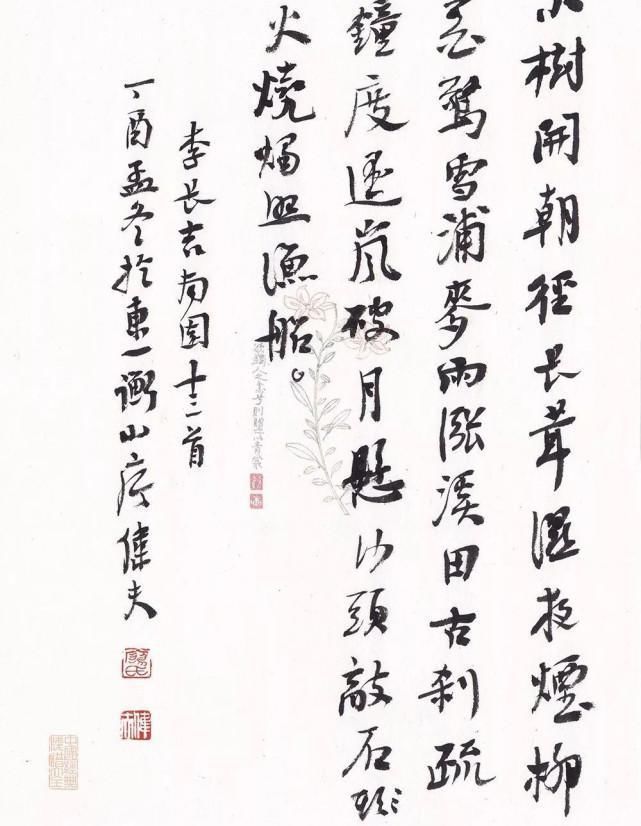 小樹開朝徑長茸濕夜煙柳
花驚雪浦麥雨漲溪田古剎疏
鐘度遙嵐破月懸沙頭敲石
火燒燭照漁船
李長吉南園十三首
丁酉孟冬於東一衡山廖偉夫